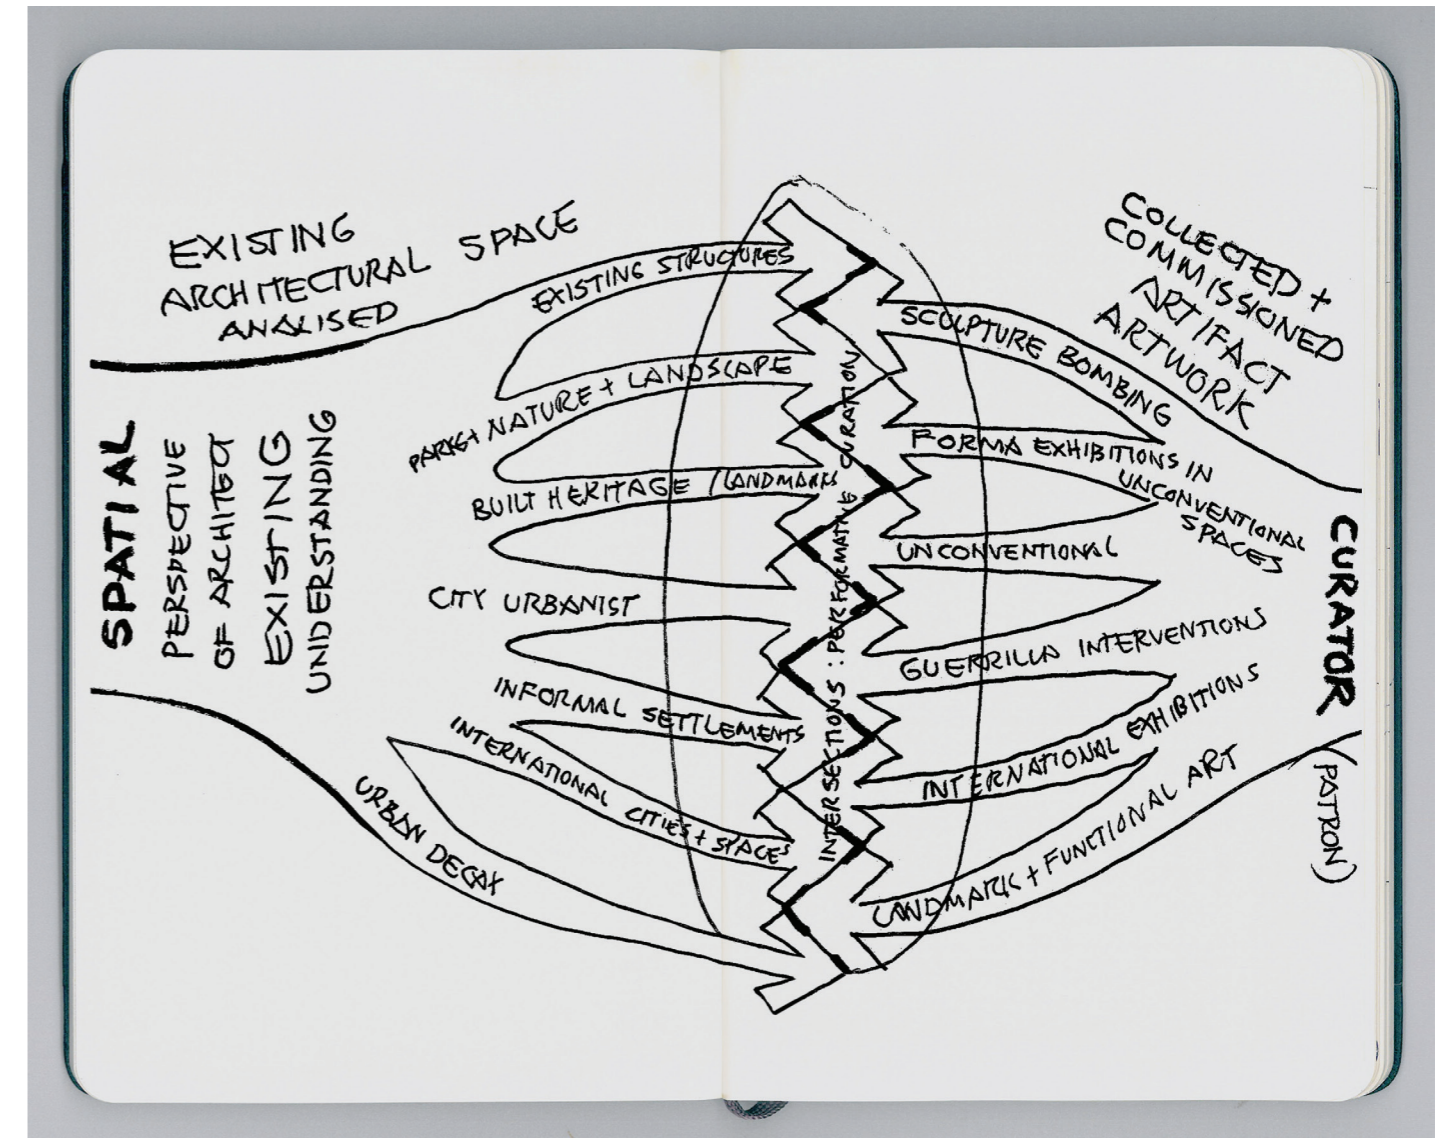 EXISTING
ARCHITECTURAL SPACE
ANALISED
SPATIAL
PERSPECTIVE
OF ARCHITECT
EXISTING
UNDERSTANDING
EXISTING STRUCTURES
PARKS+ NATURE + LANDSCAPE
BUILT HERITAGE / LANDMARKS
CITY URBANIST
INFORMAL SETTLEMENTS
INTERNATIONAL CITIES + SPACES
URBAN DECAY
INTERSECTIONS : PERFORMATIVE CURATION
COLLECTED +
COMMISSIONED
ARTIFACT
ARTWORK
SCULPTURE BOMBING
FORMA EXHIBITIONS IN
UNCONVENTIONAL
SPACES
UNCONVENTIONAL
GUERRILLA INTERVENTIONS
INTERNATIONAL EXHIBITIONS
LANDMARK + FUNCTIONAL ART
CURATOR
(PATRON)